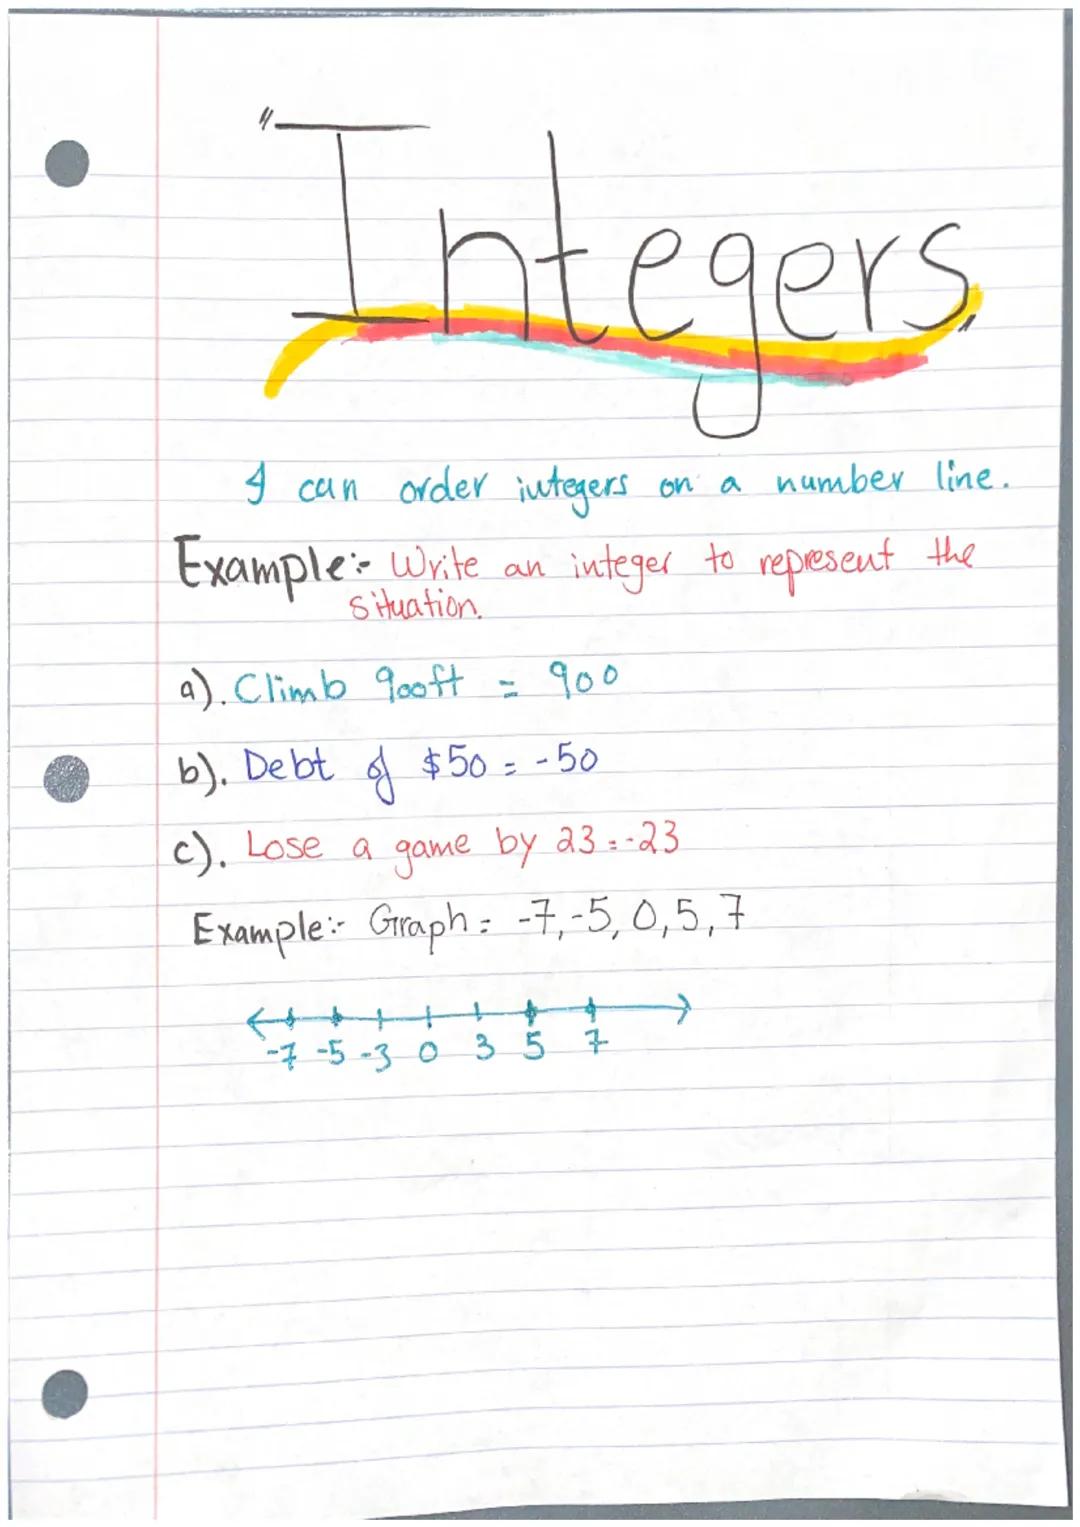 "Integers"
I can order integers on a number line.
Example:- Write an integer to represent the
situation.
a). Climb 900ft = 900
b). Debt of $50 = -50
c). Lose a game by 23 = -23
Example:- Graph = -7, -5, 0, 5, 7
-7 -5 -3 0 3 5 7